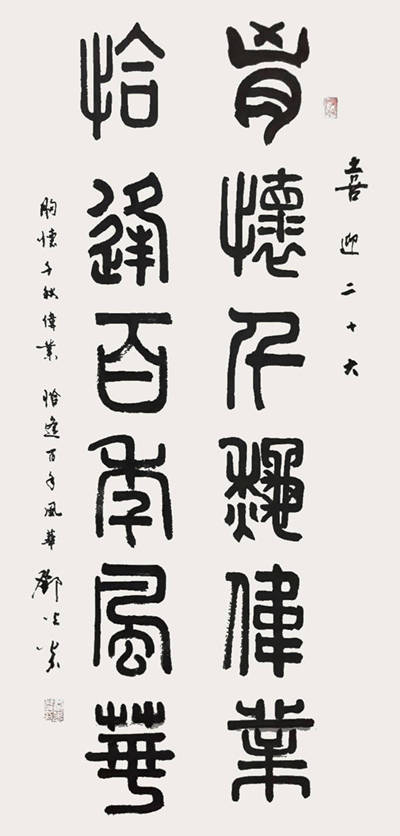 喜迎二十大
胷懷千龝偉業
恰逢百年風華
胸懷千秋偉業 恰逢百年風華 鄧